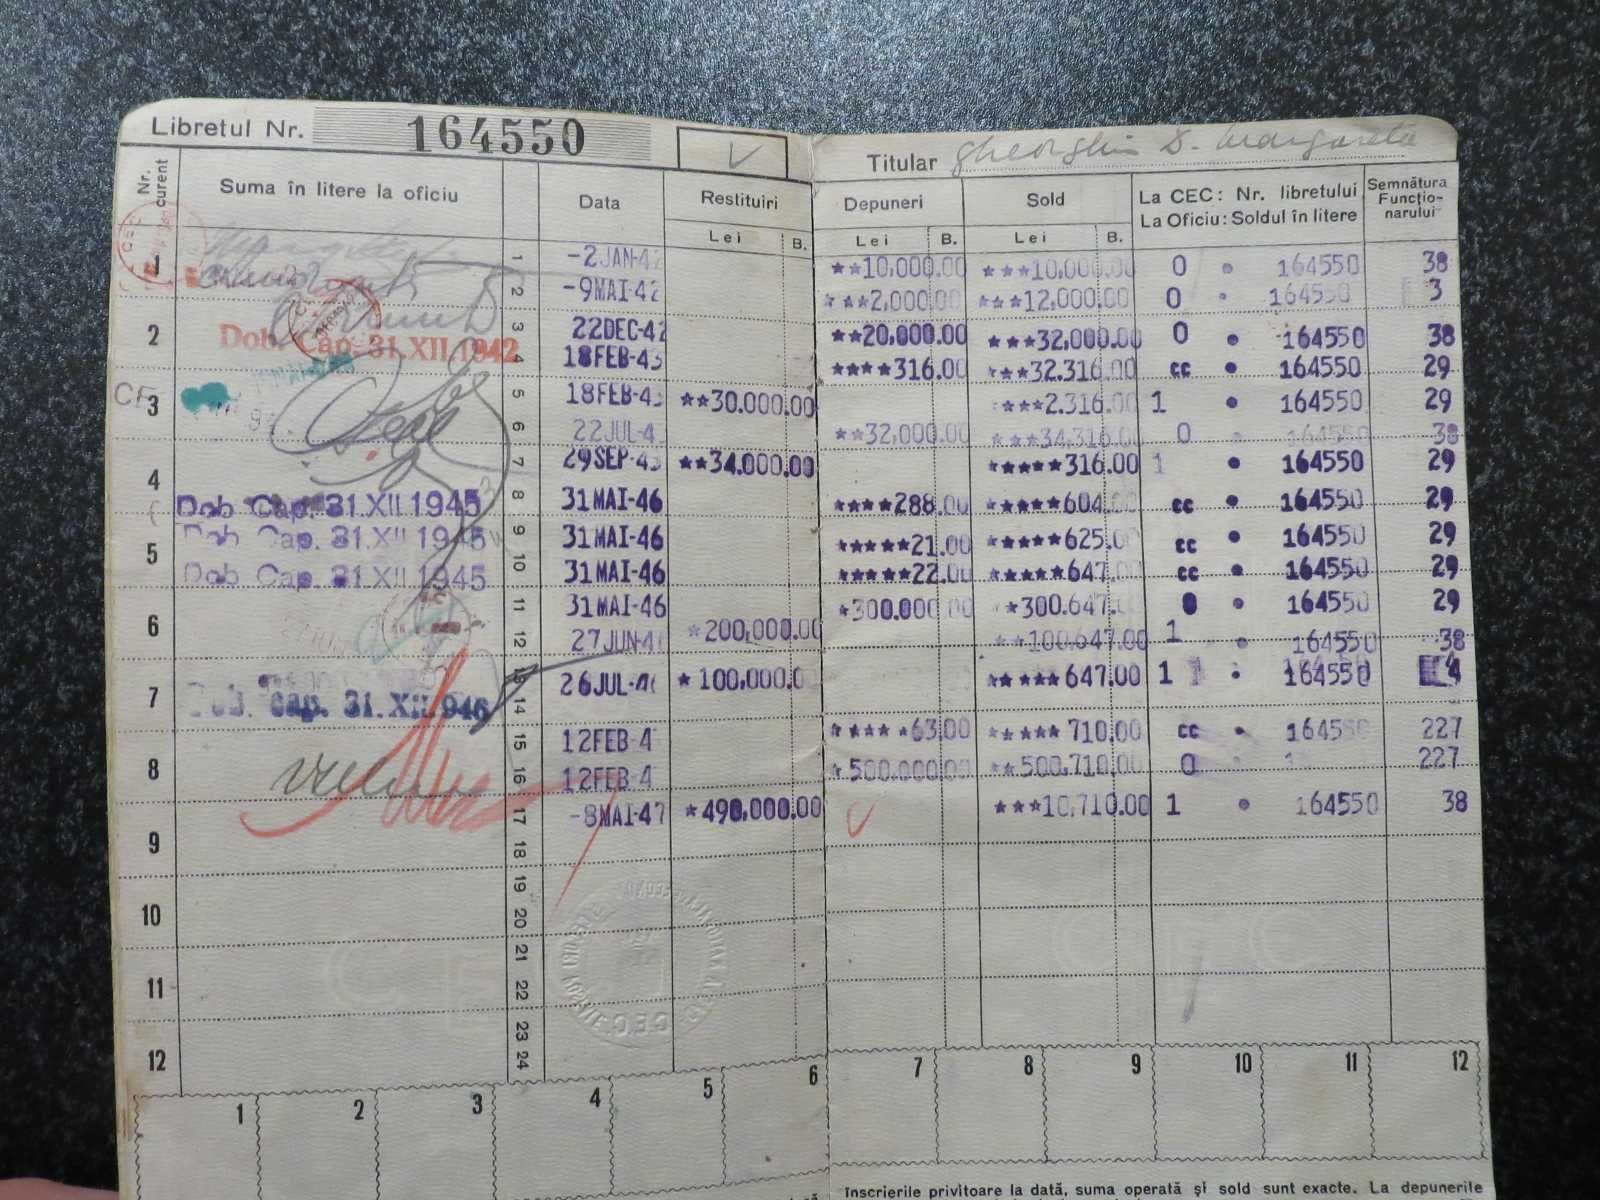 Libretul Nr. 164550 V Titular Gheorghiu D. Margareta
Nr. curent Suma în litere la oficiu Data Restituiri Depuneri Sold La CEC: Nr. libretului Semnătura
La Oficiu: Soldul în litere Funcţio-
narului
Lei B. Lei B. Lei B.
1 1 -2 JAN-42 **10,000.00 ***10,000.00 0 • 164550 38
2 -9 MAI-42 ***2,000.00 ***12,000.00 0 • 164550 3
2 3 22 DEC-42 **20,000.00 ***32,000.00 0 • 164550 38
Dob. Cap. 31.XII.1942 4 18 FEB-43 ****316.00 ***32.316.00 cc • 164550 29
3 5 18 FEB-43 **30.000.00 ***2.316.00 1 • 164550 29
6 22 JUL-4 **32,000.00 ***34,316.00 0 • 164550 38
4 7 29 SEP-43 **34.000.00 *****316.00 1 • 164550 29
Dob. Cap. 31.XII 1945 8 31 MAI-46 ****288.00 *****604.00 cc • 164550 29
5 Dob. Cap. 31.XII 1945 9 31 MAI-46 *****21.00 *****625.00 cc • 164550 29
Dob. Cap. 31.XII 1945 10 31 MAI-46 *****22.00 *****647.00 cc • 164550 29
6 11 31 MAI-46 *300.000.00 *300.647.00 0 • 164550 29
12 27 JUN-4 *200,000.00 **100,647.00 1 • 164550 38
7 13 26 JUL-4 *100,000.00 *****647.00 1 • 164550 4
Dob. Cap. 31.XII.946 14
8 15 12 FEB-4 *****63.00 *****710.00 cc • 164550 227
16 12 FEB-4 *500.000.00 **500,710.00 0 227
9 17 -8 MAI-47 *490,000.00 ***10,710.00 1 • 164550 38
18
10 19
20
11 21
22
12 23
24
1 2 3 4 5 6 7 8 9 10 11 12
C.E.C.
Inscrierile privitoare la dată, suma operată şi sold sunt exacte. La depunerile